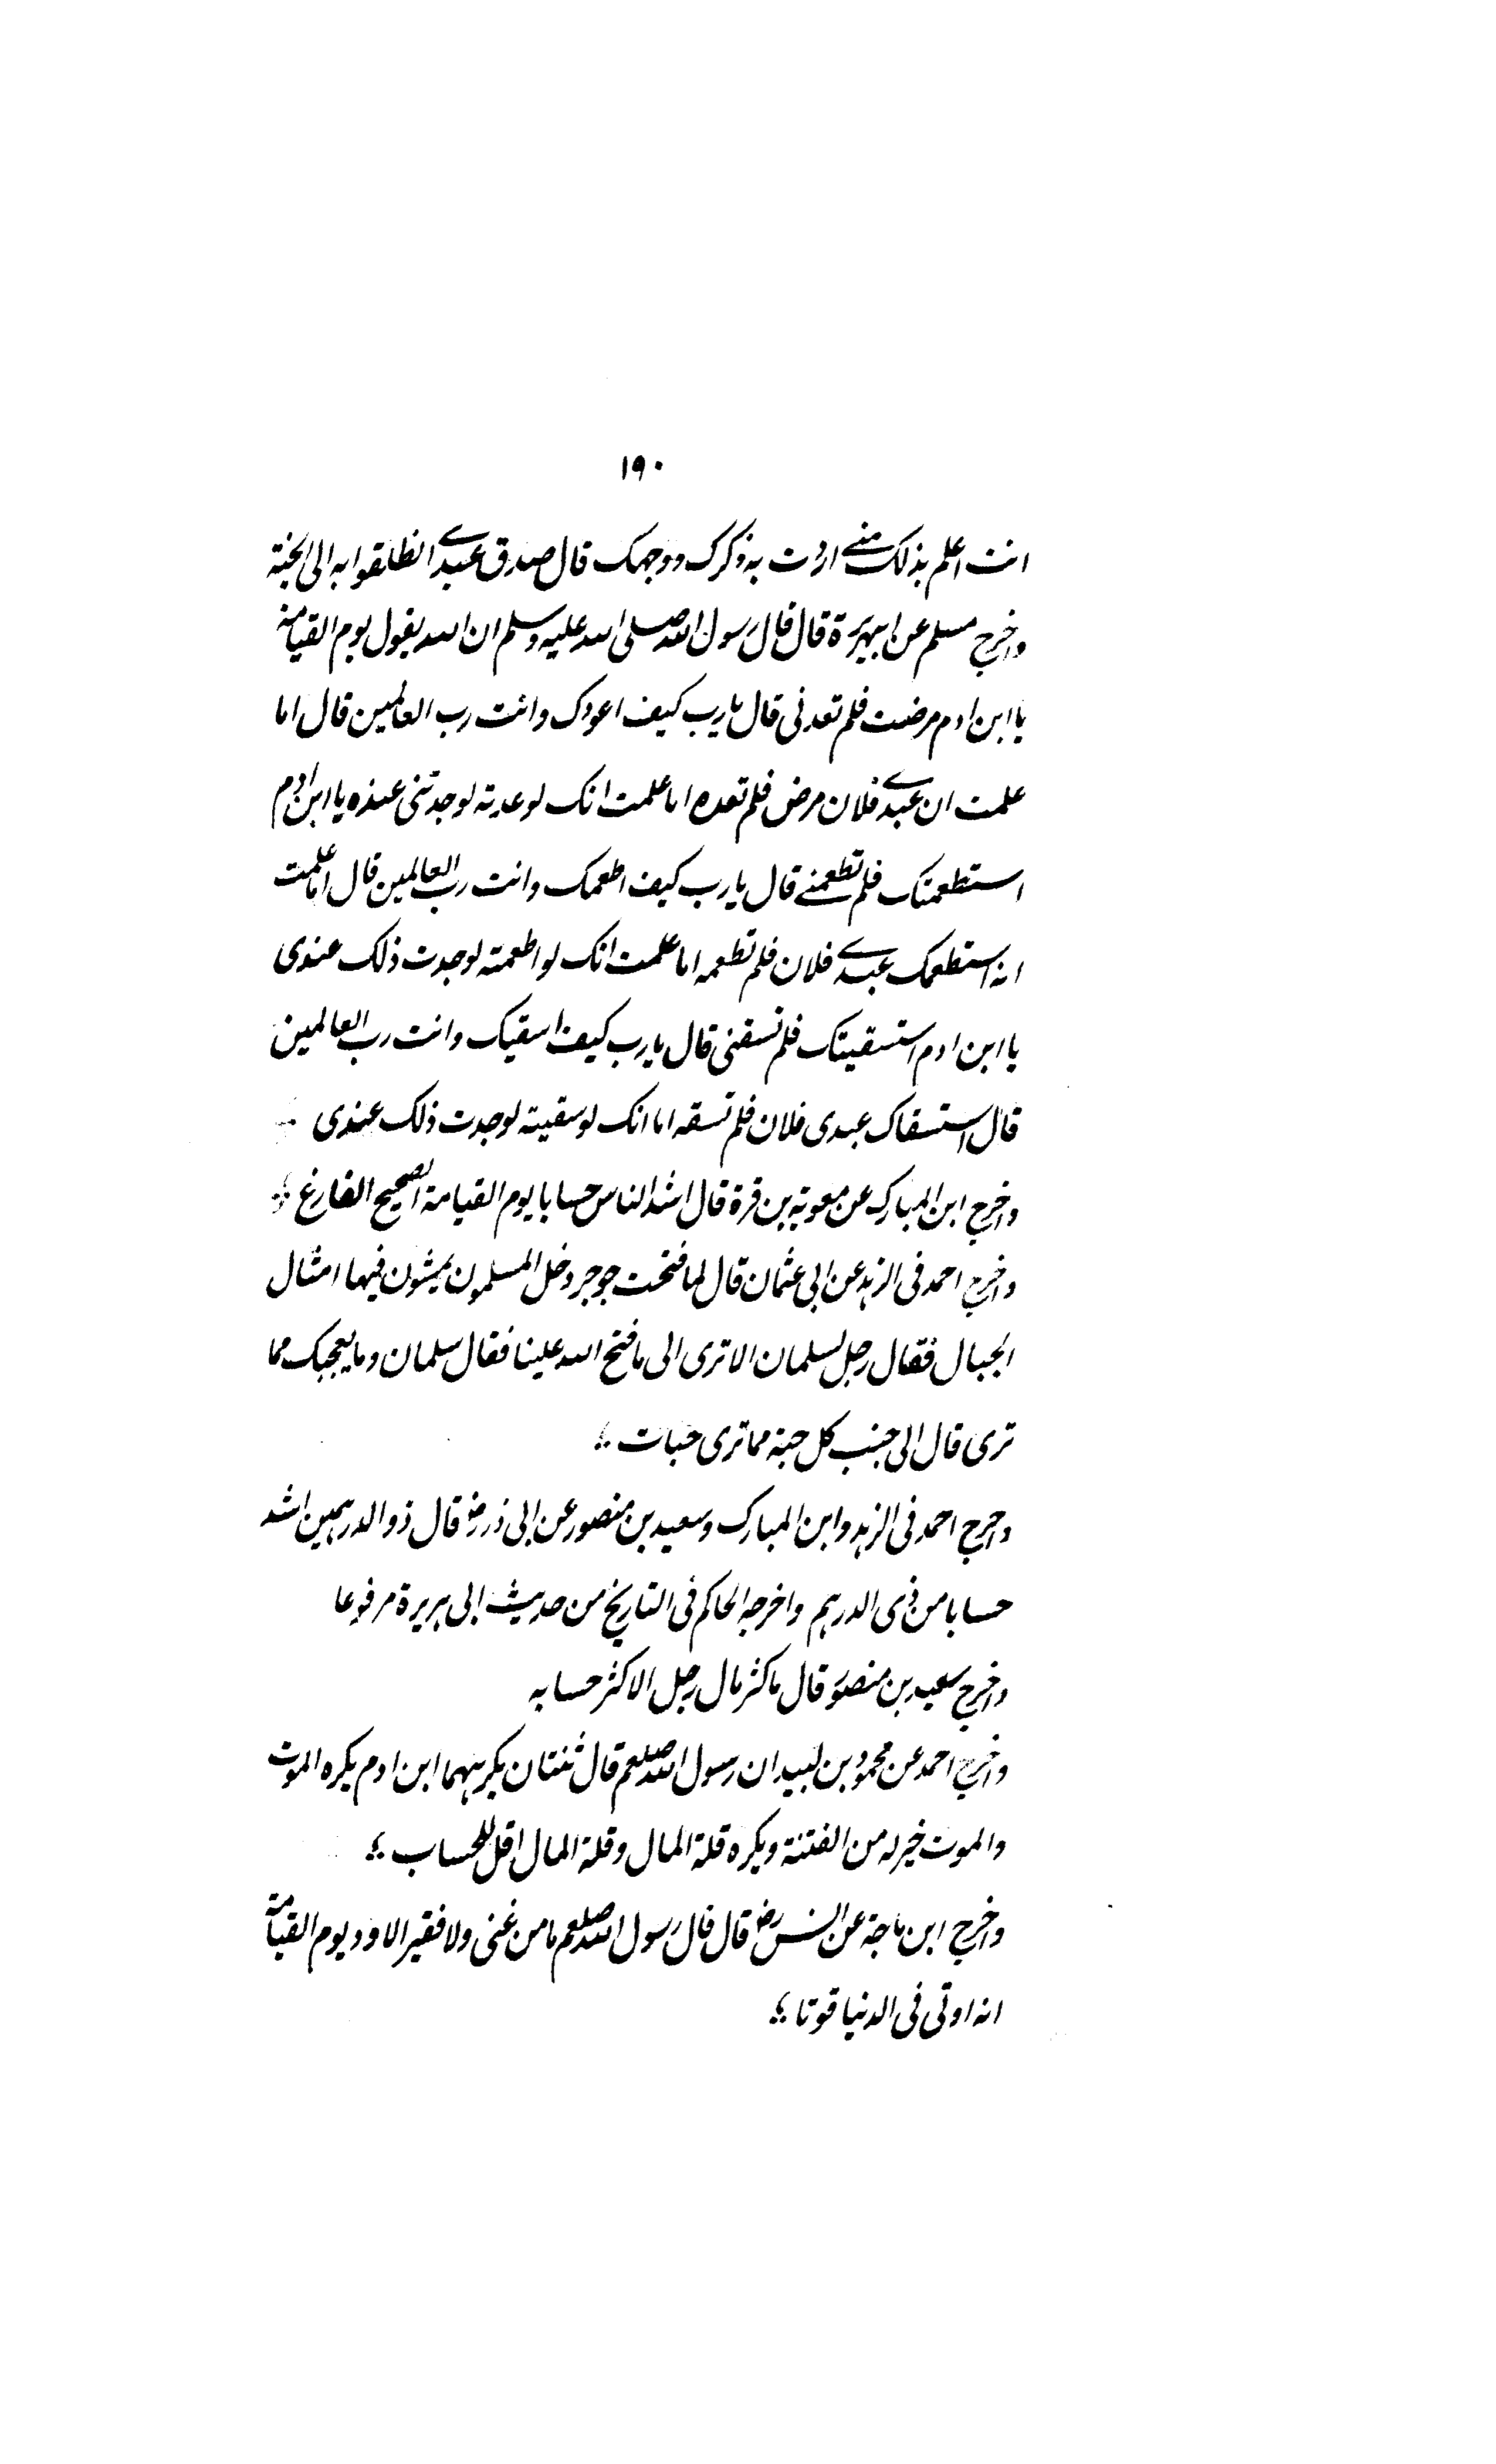 ١٩٠
انت اعلم بذلک منے اردت بہ ذکرک ووجہک قال صدق عبدے انطلقوا بہ الی الجنۃ
واخرج مسلم عن ابیہریرۃ قال قال رسول اللہ صلی اللہ علیہ وسلم ان اللہ یقول یوم القیامۃ
یا ابن ادم مرضت فلم تعدنی قال یا رب کیف اعودک وانت رب العالمین قال اما
علمت ان عبدے فلان مرض فلم تعدہ اما علمت انک لوعدتہ لوجدتنی عندہ یا ابن ادم
استطعمتک فلم تطعمنے قال یا رب کیف اطعمک وانت رب العالمین قال اما علمت
انہ استطعمک عبدے فلان فلم تطعمہ اما علمت انک لو اطعمتہ لوجدت ذلک عندی
یا ابن ادم استسقیتک فلم تسقنی قال یا رب کیف اسقیک وانت رب العالمین
قال استسقاک عبدی فلان فلم تسقہ اما انک لو سقیتہ لوجدت ذلک عندی
واخرج ابن المبارک عن معویۃ بن قرۃ قال اشد الناس حسابا یوم القیامۃ الصحیح الفارغ ؞
واخرج احمد فی الزہد عن ابی عثمان قال لما فتحت جوجر دخل المسلمون یمشون فیہا امثال
الجبال فقال رجل لسلمان الا تری الی ما فتح اللہ علینا فقال سلمان وما یعجبک مما
تری قال الی جنب کل حبۃ مما تری حبات ؞
واخرج احمد فی الزہد وابن المبارک وسعید بن منصور عن ابی ذر رض قال ذو الدرہمین اشد
حسابا من ذی الدرہم واخرجہ الحاکم فی التاریخ من حدیث ابی ہریرۃ مرفوعا
واخرج سعید بن منصور قال ما کثر مال رجل الا کثر حسابہ
واخرج احمد عن محمود بن لبید ان رسول اللہ صلعم قال ثنتان یکرہہما ابن ادم یکرہ الموت
والموت خیر لہ من الفتنۃ ویکرہ قلۃ المال وقلۃ المال اقل للحساب ؞
واخرج ابن ماجۃ عن انس رض قال قال رسول اللہ صلعم ما من غنی ولا فقیر الا ود یوم القیامۃ
انہ اوتی فی الدنیا قوتا ؞